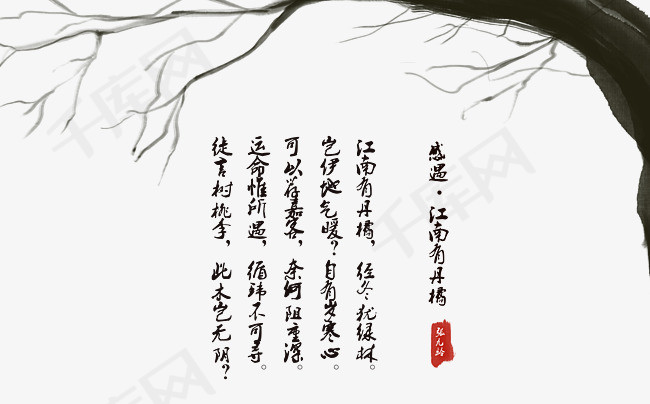 感遇·江南有丹橘
张九龄
江南有丹橘，经冬犹绿林。
岂伊地气暖？自有岁寒心。
可以荐嘉客，奈何阻重深。
运命惟所遇，循环不可寻。
徒言树桃李，此木岂无阴？
千库网
千库网
千库网